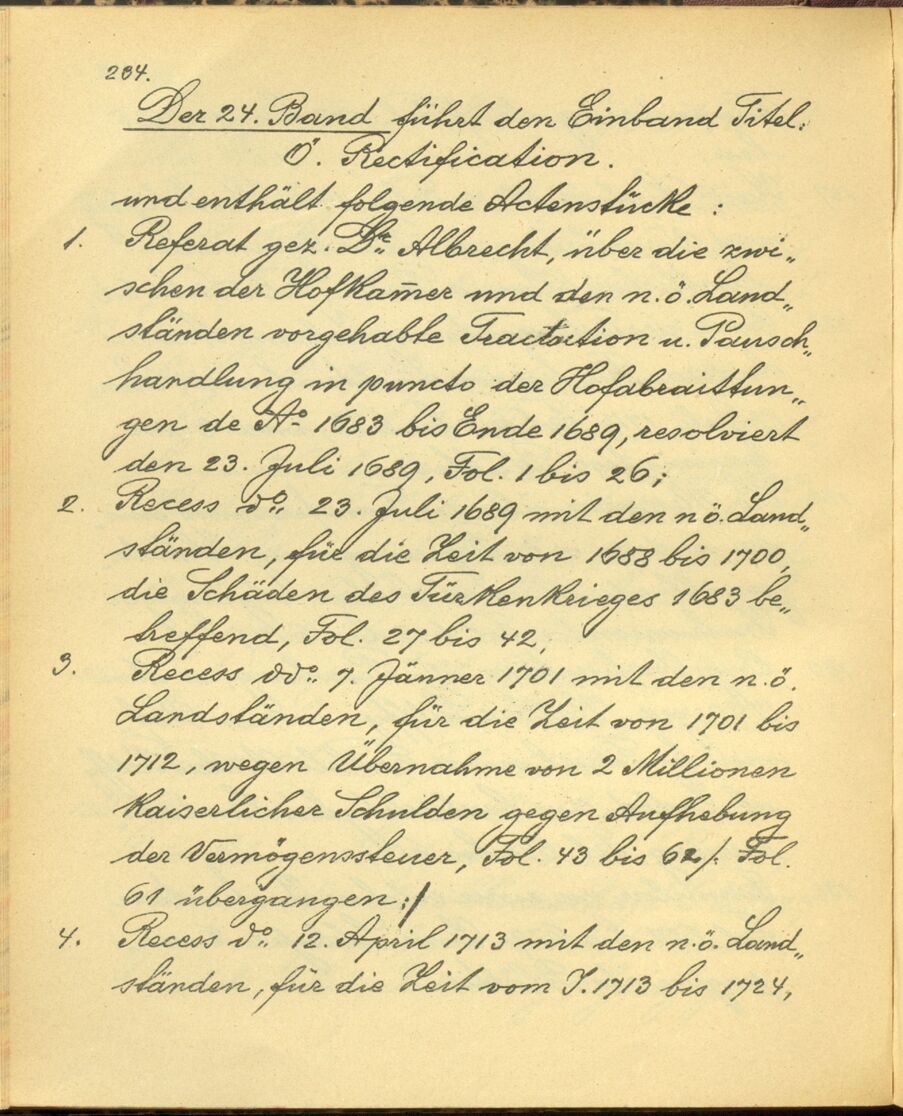 234.
Der 24. Band führt den Einband Titel:
Ö. Rectification.
und enthält folgende Actenstücke :
1. Referat gez. Dr. Albrecht, über die zwi„
schen der Hofkam̅er und den n.ö. Land„
ständen vorgehabte Tractation u. Pausch„
handlung in puncto der Hofabraittun„
gen de Ao 1683 bis Ende 1689, resolviert
den 23. Juli 1689, Fol. 1 bis 26;
2. Recess do. 23. Juli 1689 mit den n.ö. Land„
ständen, für die Zeit von 1688 bis 1700,
die Schäden des Türkenkrieges 1683 be„
treffend, Fol. 27 bis 42,
3. Recess ddo. 7. Jänner 1701 mit den n.ö.
Landständen, für die Zeit von 1701 bis
1712, wegen Übernahme von 2 Millionen
Kaiserlicher Schulden gegen Aufhebung
der Vermögenssteuer, Fol. 43 bis 62/: Fol.
61 übergangen :/
4. Recess do. 12. April 1713 mit den n.ö. Land„
ständen, für die Zeit vom J. 1713 bis 1724,